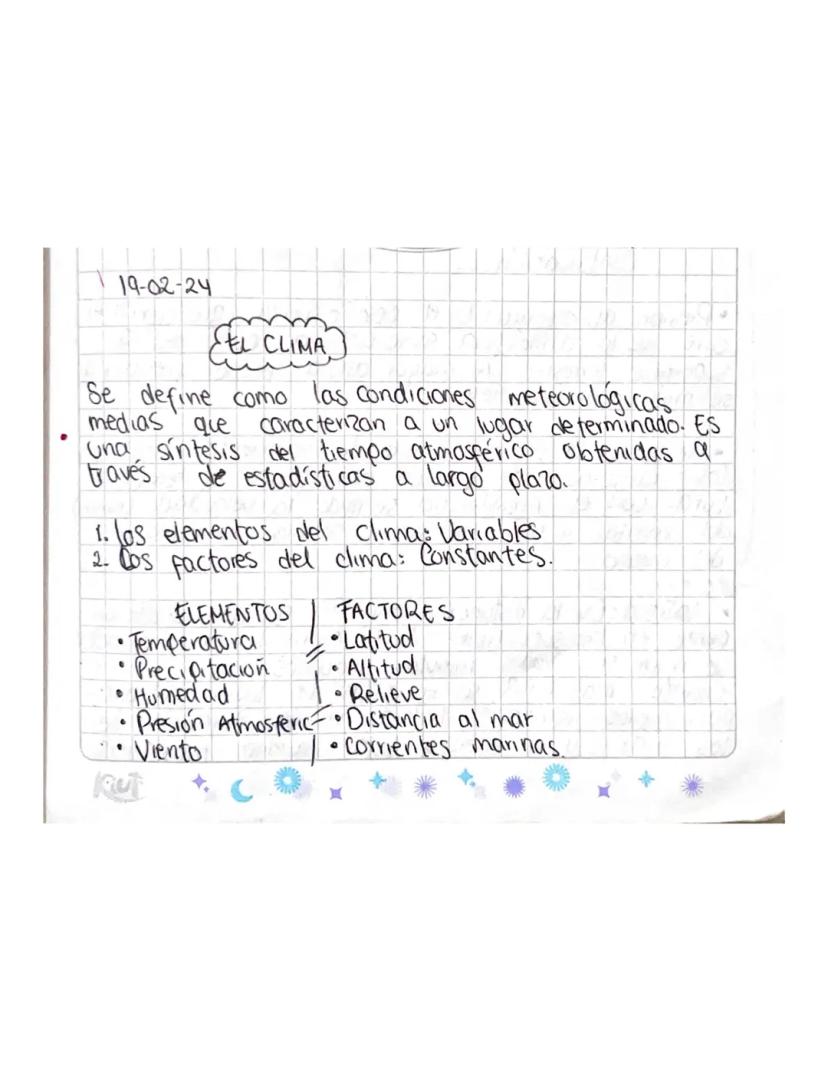 19-02-24
EL CLIMA
Se define como las condiciones meteorológicas
medias que caracterizan a un lugar determinado. Es
una síntesis del tiempo atmosférico obtenidas a
través de estadísticas a largo plazo.
1. los elementos del clima: Variables
2. Los factores del clima: Constantes.
ELEMENTOS | FACTORES
• Temperatura • Latitud
• Precipitación • Altitud
• Humedad • Relieve
• Presión Atmosferic • Distancia al mar
• Viento • Corrientes marinas.
Kiut